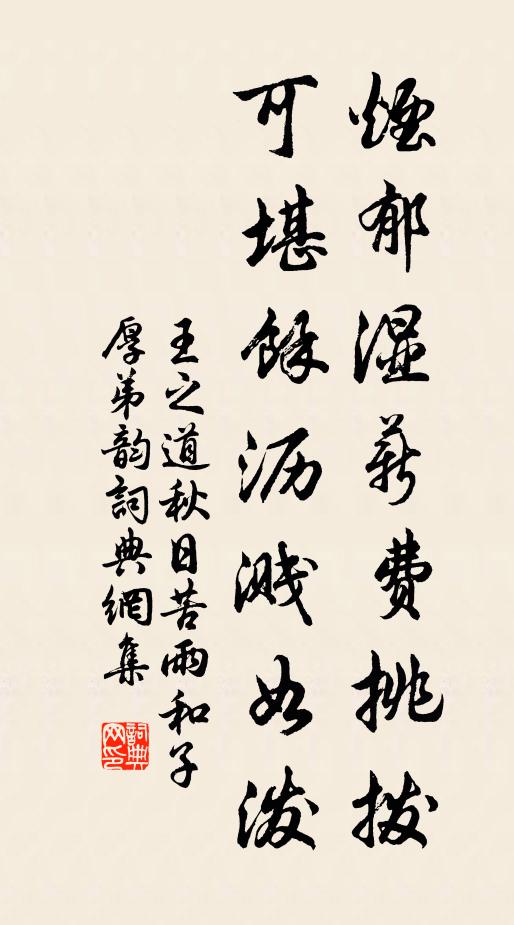 煙郁濕薪費挑撥
可堪餘沥溅如潑
王之道秋日苦雨和子
厚弟韵詞典網集
詞典网印